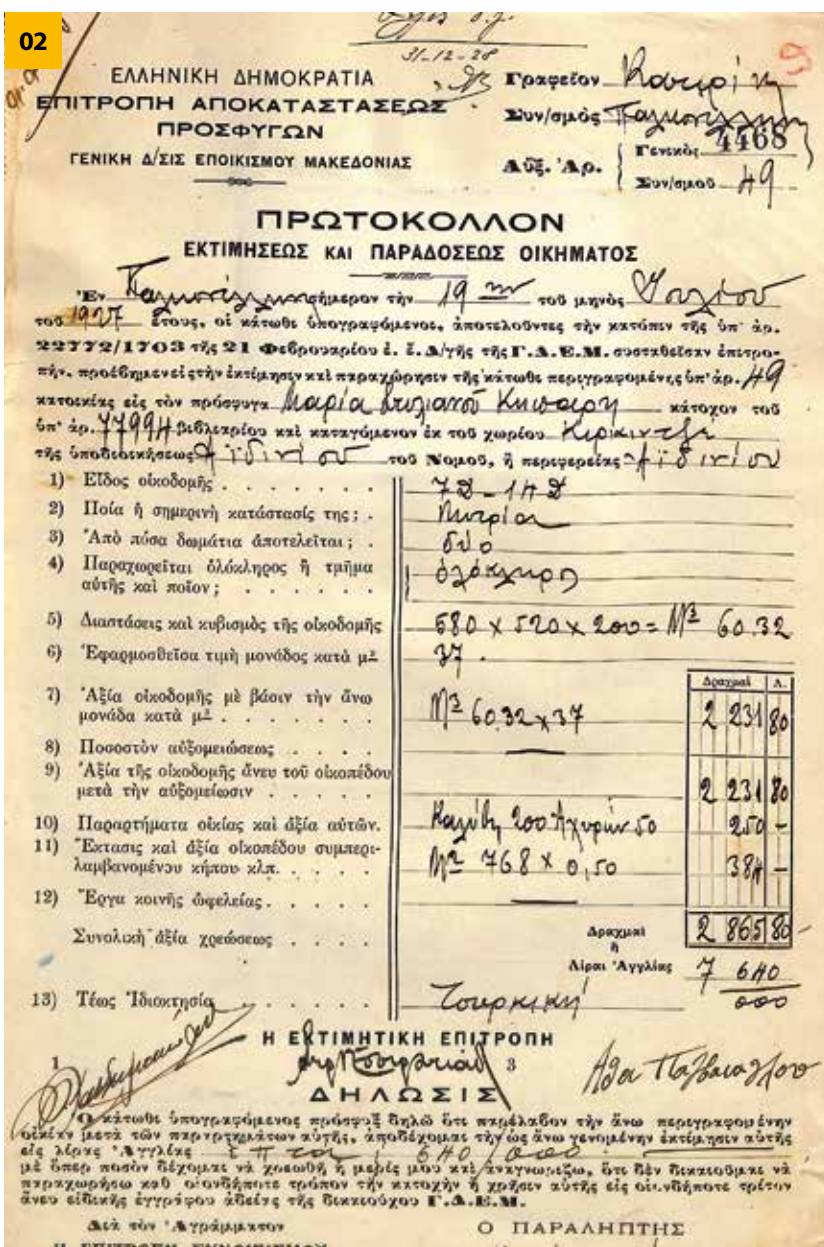 02
31-12-28
ΕΛΛΗΝΙΚΗ ΔΗΜΟΚΡΑΤΙΑ
ΕΠΙΤΡΟΠΗ ΑΠΟΚΑΤΑΣΤΑΣΕΩΣ
ΠΡΟΣΦΥΓΩΝ
ΓΕΝΙΚΗ Δ/ΣΙΣ ΕΠΟΙΚΙΣΜΟΥ ΜΑΚΕΔΟΝΙΑΣ
Γραφεῖον
Συν/σμὸς
Αὔξ. Ἀρ. Γενικὸς 4468
Συν/σμοῦ 49
ΠΡΩΤΟΚΟΛΛΟΝ
ΕΚΤΙΜΗΣΕΩΣ ΚΑΙ ΠΑΡΑΔΟΣΕΩΣ ΟΙΚΗΜΑΤΟΣ
Ἐν σήμερον τὴν 19 ην τοῦ μηνὸς Ἰουλίου
τοῦ 1927 ἔτους, οἱ κάτωθι ὑπογραφόμενοι, ἀποτελοῦντες τὴν κατόπιν τῆς ὑπ' ἀρ.
22772/1703 τῆς 21 Φεβρουαρίου ἐ. ἔ. Δ/γῆς τῆς Γ.Δ.Ε.Μ. συσταθεῖσαν ἐπιτρο-
πήν, προέβημεν εἰς τὴν ἐκτίμησιν καὶ παραχώρησιν τῆς κάτωθι περιγραφομένης ὑπ' ἀρ. 49
κατοικίας εἰς τὸν πρόσφυγα Μαρία κάτοχον τοῦ
ὑπ' ἀρ. 77994 βιβλιαρίου καὶ καταγόμενον ἐκ τοῦ χωρίου Κιρκιντζέ
τῆς ὑποδιοικήσεως Ἀϊδινίου τοῦ Νομοῦ, ἢ περιφερείας Ἀϊδινίου
1) Εἶδος οἰκοδομῆς . . . . . . .
2) Ποία ἡ σημερινὴ κατάστασίς της; . Μετρία
3) Ἀπὸ πόσα δωμάτια ἀποτελεῖται; . δύο
4) Παραχωρεῖται ὁλόκληρος ἢ τμῆμα
αὐτῆς καὶ ποῖον; . . . . . . ὁλόκληρη
5) Διαστάσεις καὶ κυβισμὸς τῆς οἰκοδομῆς 580 × 520 × 200 = Μ3 60.32
6) Ἐφαρμοσθεῖσα τιμὴ μονάδος κατὰ μ3 37.
Δραχμαὶ Λ.
7) Ἀξία οἰκοδομῆς μὲ βάσιν τὴν ἄνω
μονάδα κατὰ μ3 . . . . . . . Μ3 60.32 × 37 2 231 80
8) Ποσοστὸν αὐξομειώσεως . . . .
9) Ἀξία τῆς οἰκοδομῆς ἄνευ τοῦ οἰκοπέδου
μετὰ τὴν αὐξομείωσιν . . . . . 2 231 80
10) Παραρτήματα οἰκίας καὶ ἀξία αὐτῶν. Καλύβη 200 Ἀχυρών 50 250 -
11) Ἔκτασις καὶ ἀξία οἰκοπέδου συμπερι-
λαμβανομένου κήπου κλπ. . . . . Μ2 768 × 0,50 384 -
12) Ἔργα κοινῆς ὠφελείας . . . . .
Συνολικὴ ἀξία χρεώσεως . . . . Δραχμαὶ 2 865 80
ἢ
Λίραι Ἀγγλίας 7 640
000
13) Τέως Ἰδιοκτησία . . . . . . Τουρκική
Η ΕΚΤΙΜΗΤΙΚΗ ΕΠΙΤΡΟΠΗ
1 3
ΔΗΛΩΣΙΣ
Ὁ κάτωθι ὑπογραφόμενος πρόσφυξ δηλῶ ὅτι παρέλαβον τὴν ἄνω περιγραφομένην
οἰκίαν μετὰ τῶν παραρτημάτων αὐτῆς, ἀποδέχομαι τὴν ὡς ἄνω γενομένην ἐκτίμησιν αὐτῆς
εἰς λίρας Ἀγγλίας ἑπτά, 640/000
μὲ ὅπερ ποσὸν δέχομαι νὰ χρεωθῇ ἡ μερίς μου καὶ ἀναγνωρίζω, ὅτι δὲν δικαιοῦμαι νὰ
παραχωρήσω καθ' οἱονδήποτε τρόπον τὴν κατοχὴν ἢ χρῆσιν αὐτῆς εἰς οἱονδήποτε τρίτον
ἄνευ εἰδικῆς ἐγγράφου ἀδείας τῆς δικαιούχου Γ.Δ.Ε.Μ.
Διὰ τὸν Ἀγράμματον Ο ΠΑΡΑΛΗΠΤΗΣ